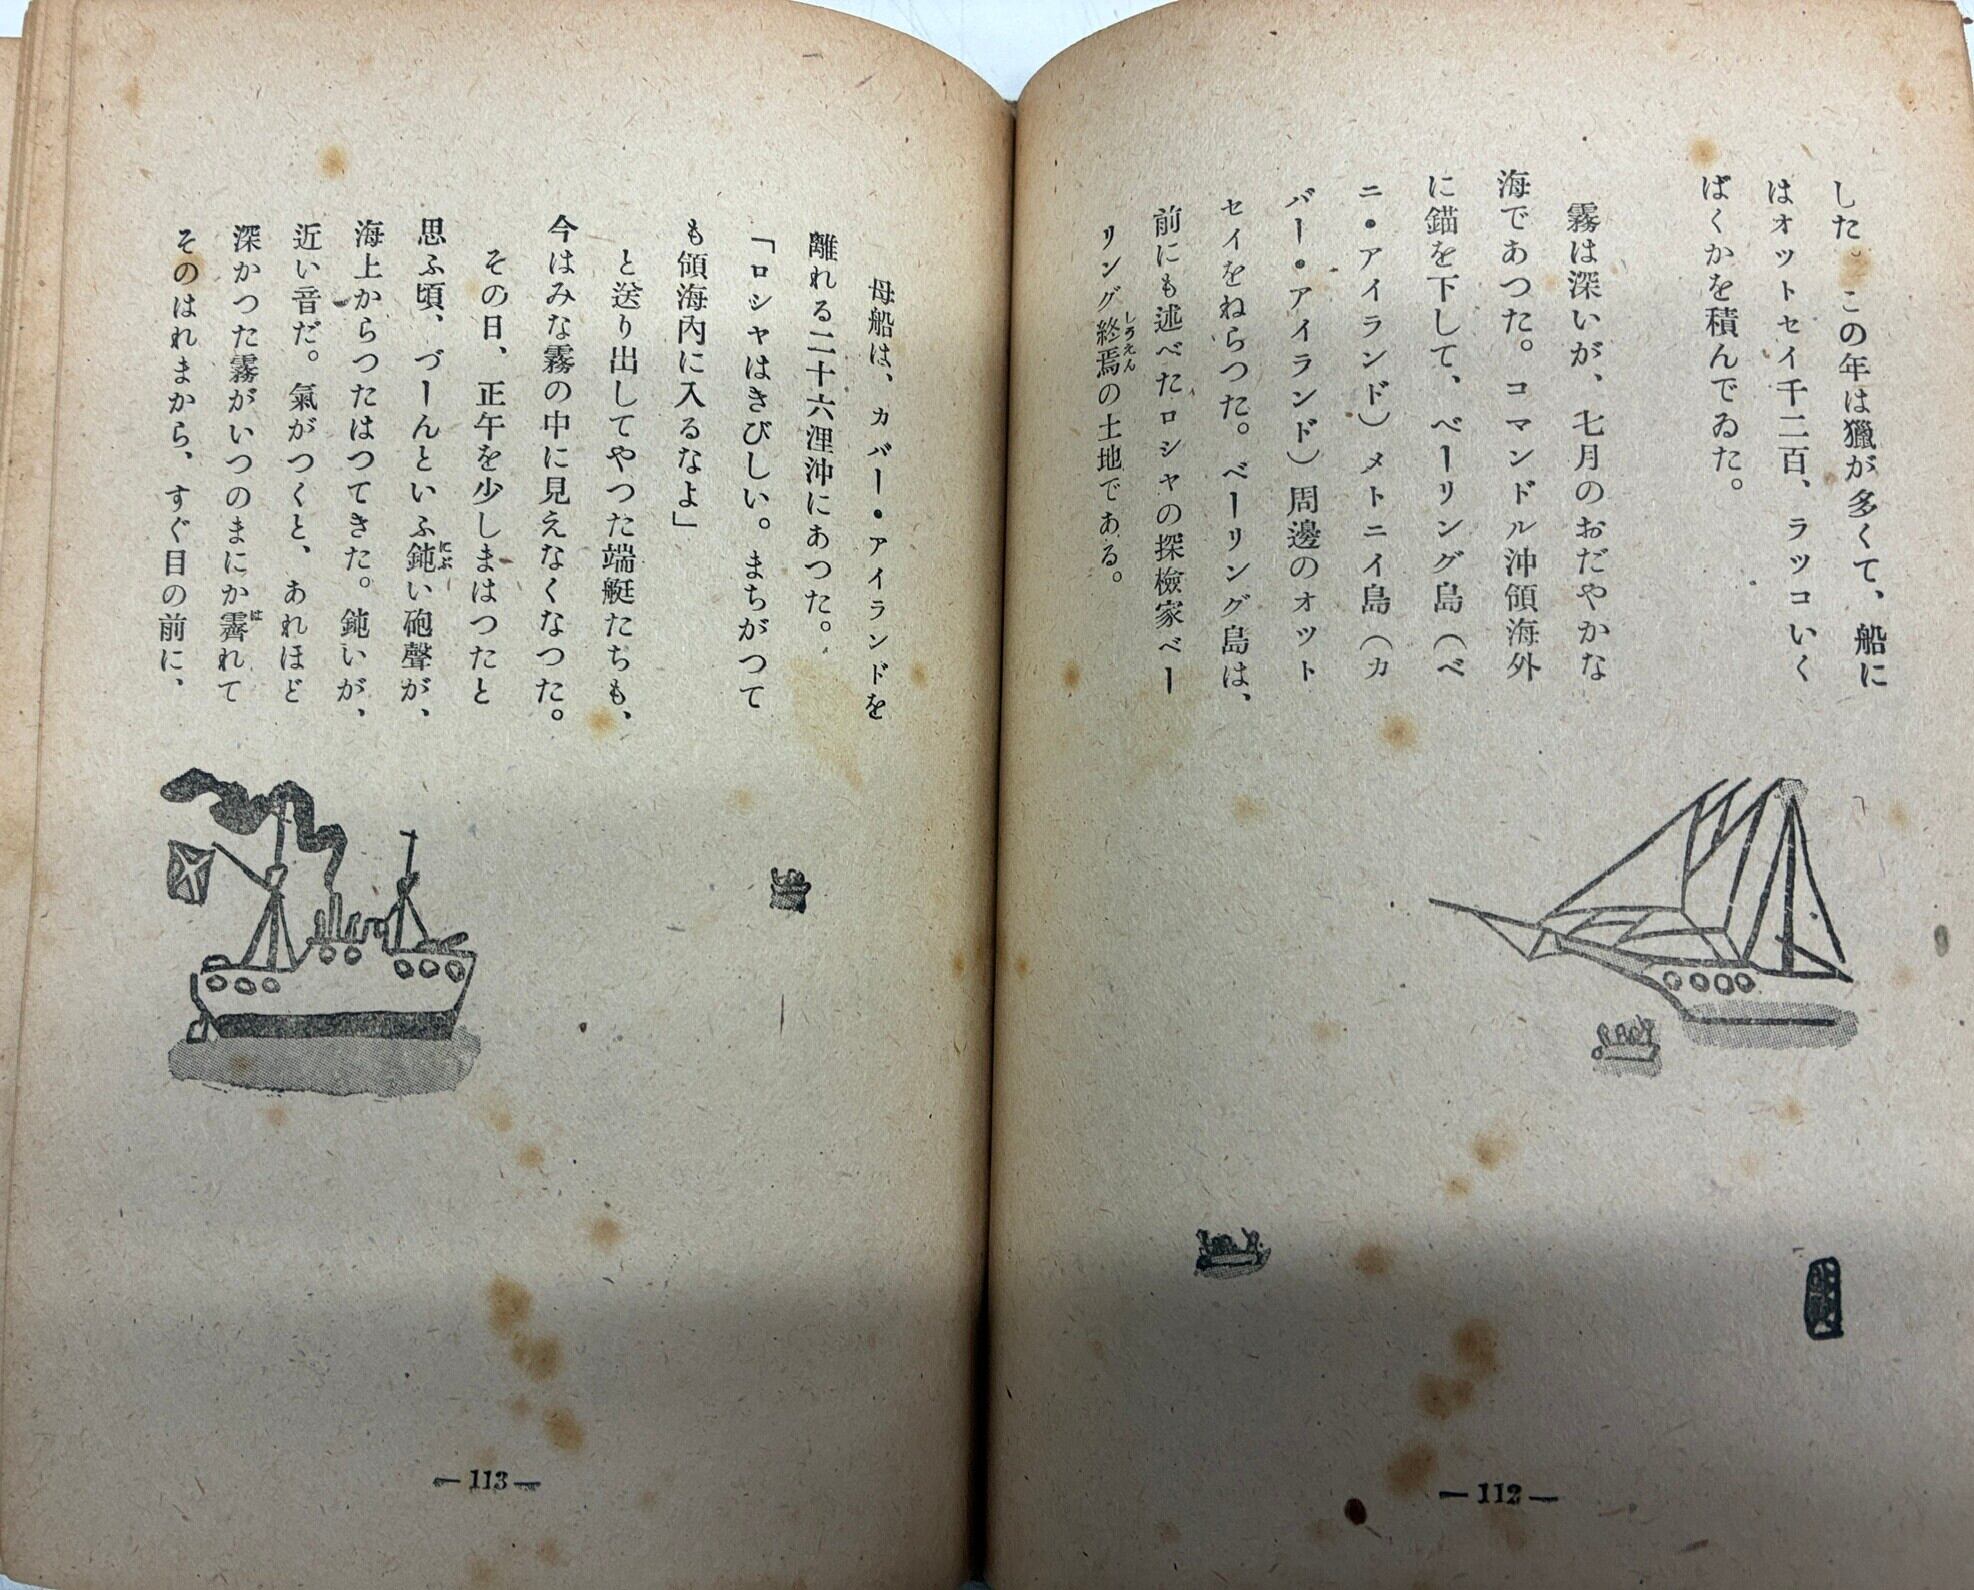 した。この年は獵が多くて、船に
はオットセイ千二百、ラッコいく
ばくかを積んでゐた。
霧は深いが、七月のおだやかな
海であつた。コマンドル沖領海外
に錨を下して、ベーリング島（ベ
ニ・アイランド）メトニイ島（カ
バー・アイランド）周邊のオット
セイをねらつた。ベーリング島は、
前にも述べたロシヤの探檢家ベー
リング終焉の土地である。
しうえん
— 112 —
母船は、カバー・アイランドを
離れる二十六浬沖にあつた。
「ロシヤはきびしい。まちがつて
も領海內に入るなよ」
と送り出してやつた端艇たちも、
今はみな霧の中に見えなくなつた。
その日、正午を少しまはつたと
思ふ頃、づーんといふ鈍い砲聲が、
にぶ
海上からつたはつてきた。鈍いが、
近い音だ。氣がつくと、あれほど
深かつた霧がいつのまにか霽れて
は
そのはれまから、すぐ目の前に、
— 113 —